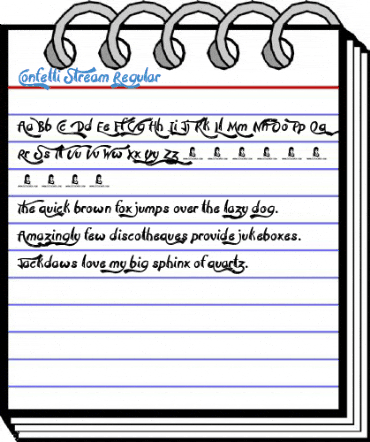 Confetti Stream Regular
Aa Bb Cc Dd Ee Ff Gg Hh Ii Jj Kk Ll Mm Nn Oo Pp Qq
Rr Ss Tt Uu Vv Ww Xx Yy Zz
The quick brown fox jumps over the lazy dog.
Amazingly few discotheques provide jukeboxes.
Jackdaws love my big sphinx of quartz.